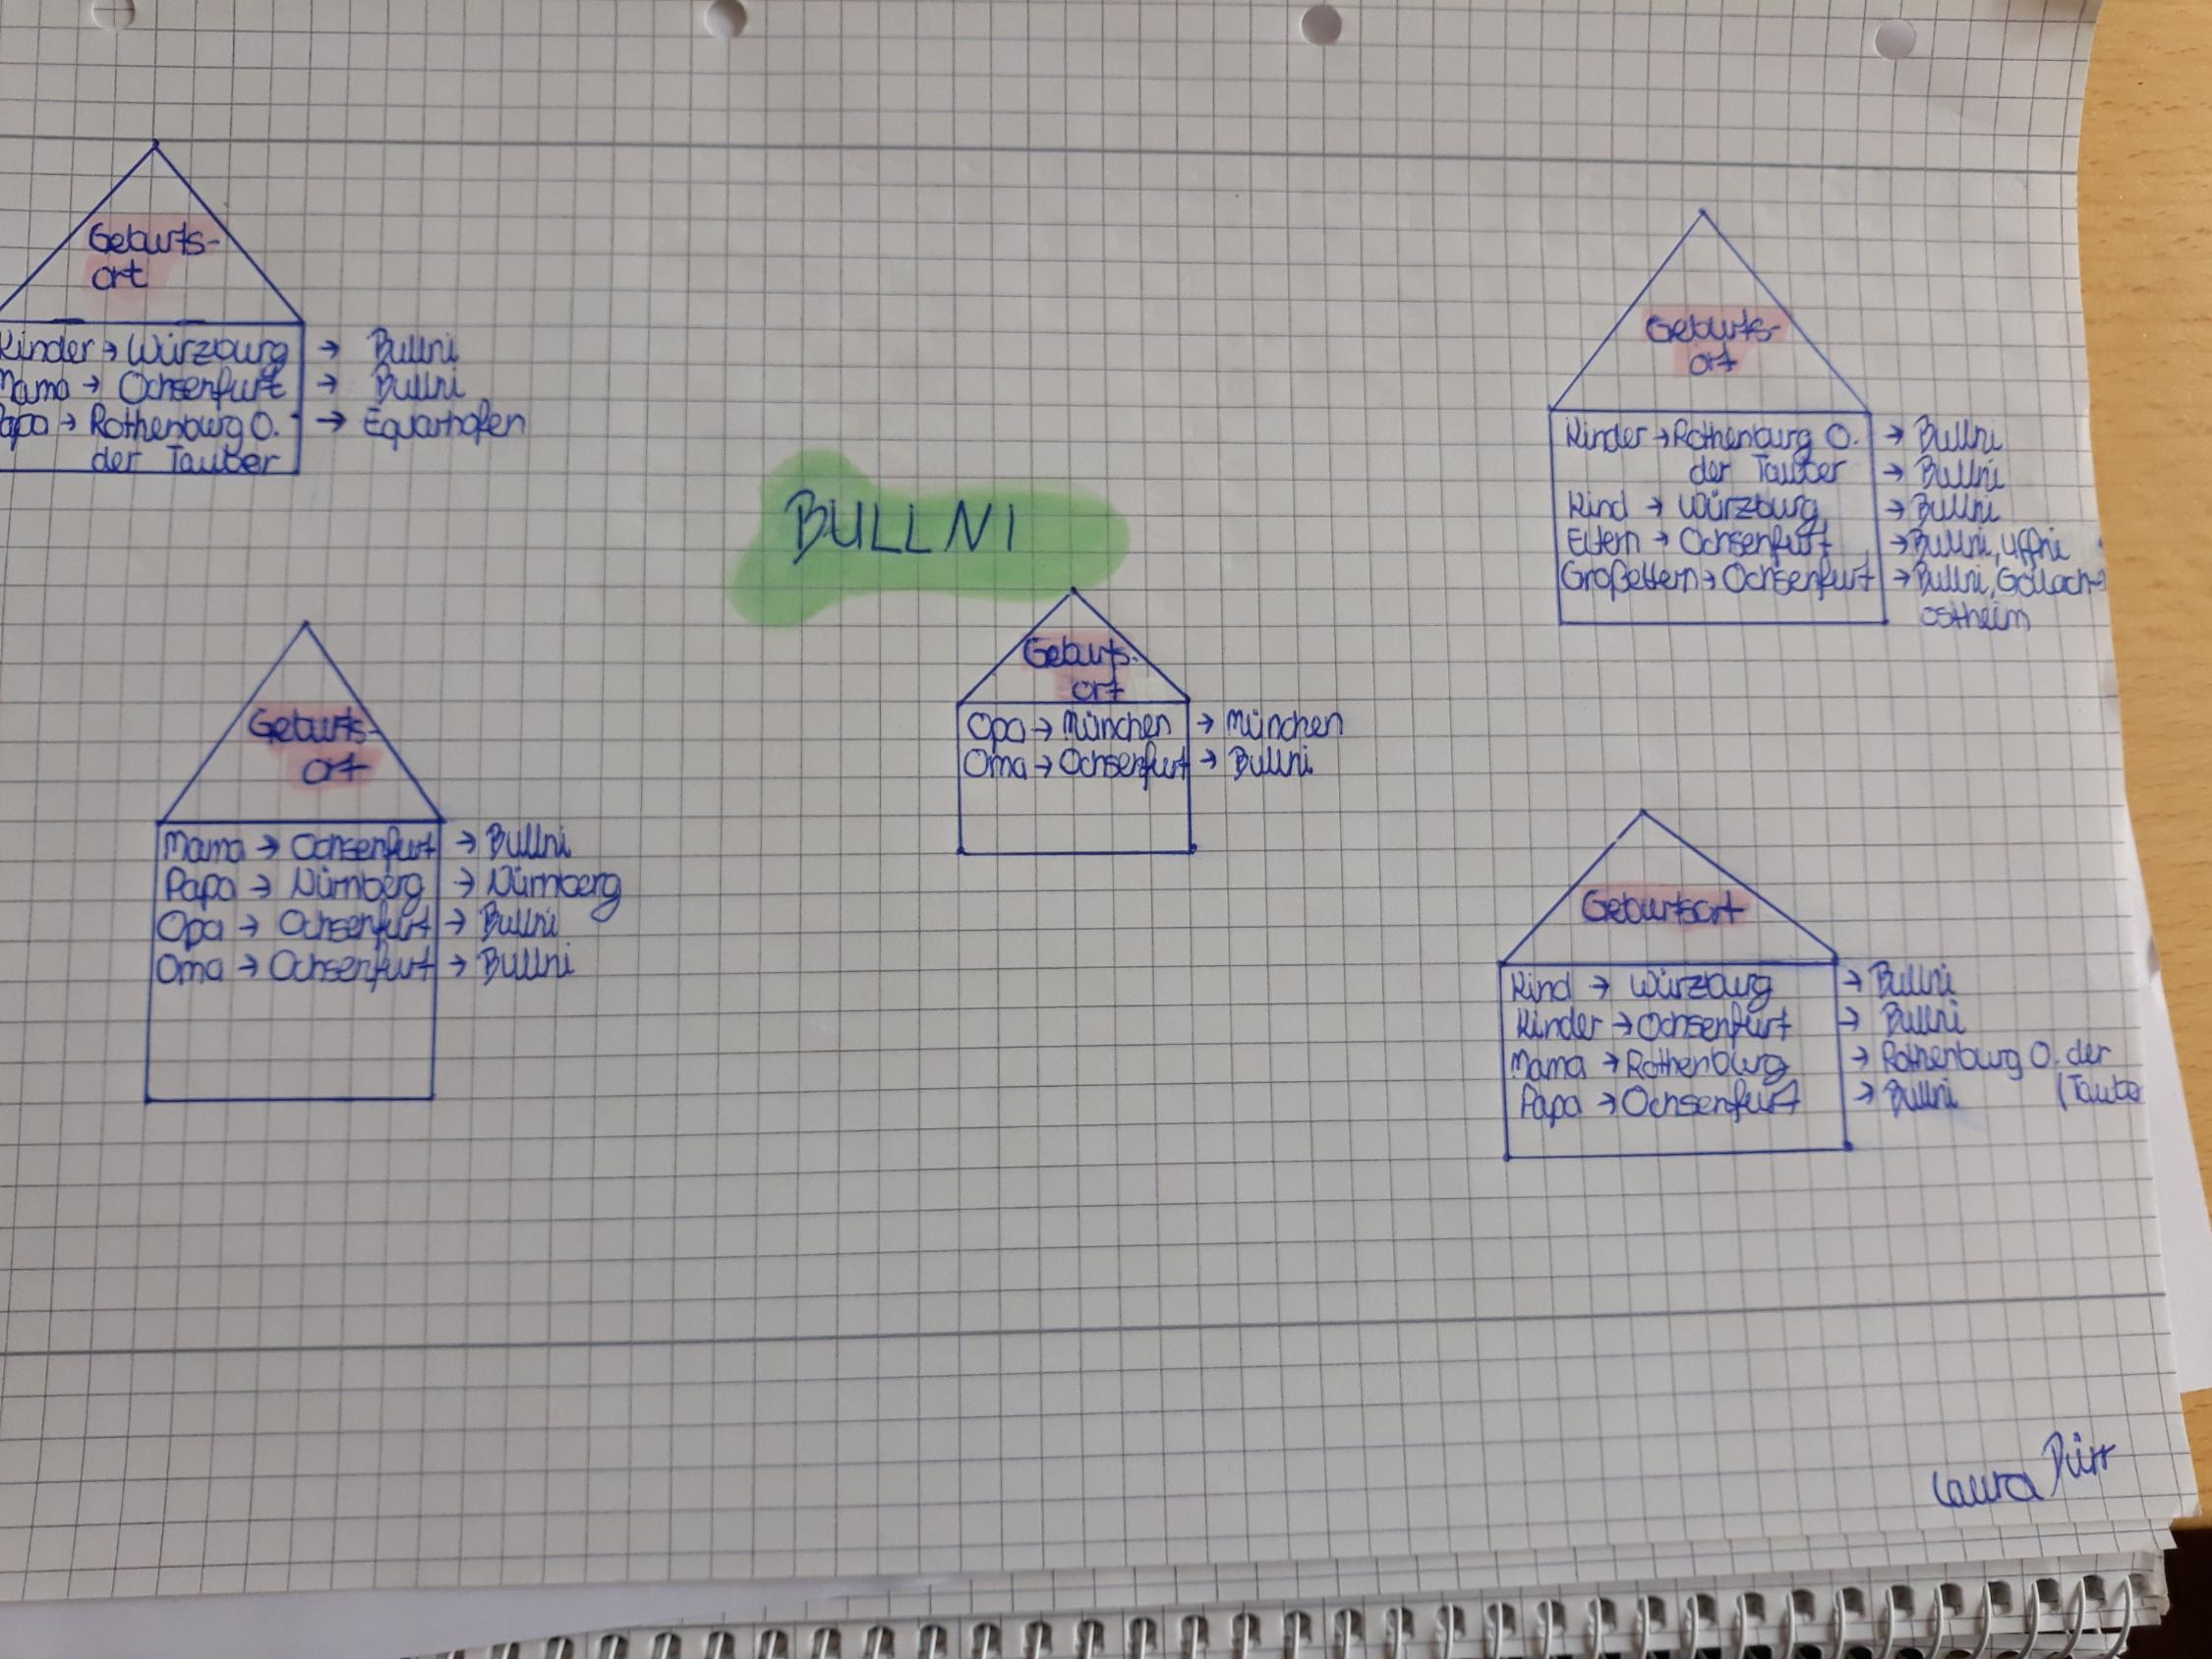 Geburts-
ort
Kinder → Würzburg → Bullni
Mama → Ochsenfurt → Bullni
Papa → Rothenburg O. → Equarhofen
der Tauber
BULLNI
Geburts-
ort
Kinder → Rothenburg O. → Bullni
der Tauber → Bullni
Kind → Würzburg → Bullni
Eltern → Ochsenfurt → Bullni, Uffni
Großeltern → Ochsenfurt → Bullni, Gollach-
ostheim
Geburts-
ort
Mama → Ochsenfurt → Bullni
Papa → Nürnberg → Nürnberg
Opa → Ochsenfurt → Bullni
Oma → Ochsenfurt → Bullni
Geburts-
ort
Opa → München → München
Oma → Ochsenfurt → Bullni
Geburtsort
Kind → Würzburg → Bullni
Kinder → Ochsenfurt → Bullni
Mama → Rothenburg → Rothenburg O. der
Papa → Ochsenfurt → Bullni (Taube
Laura Dürr